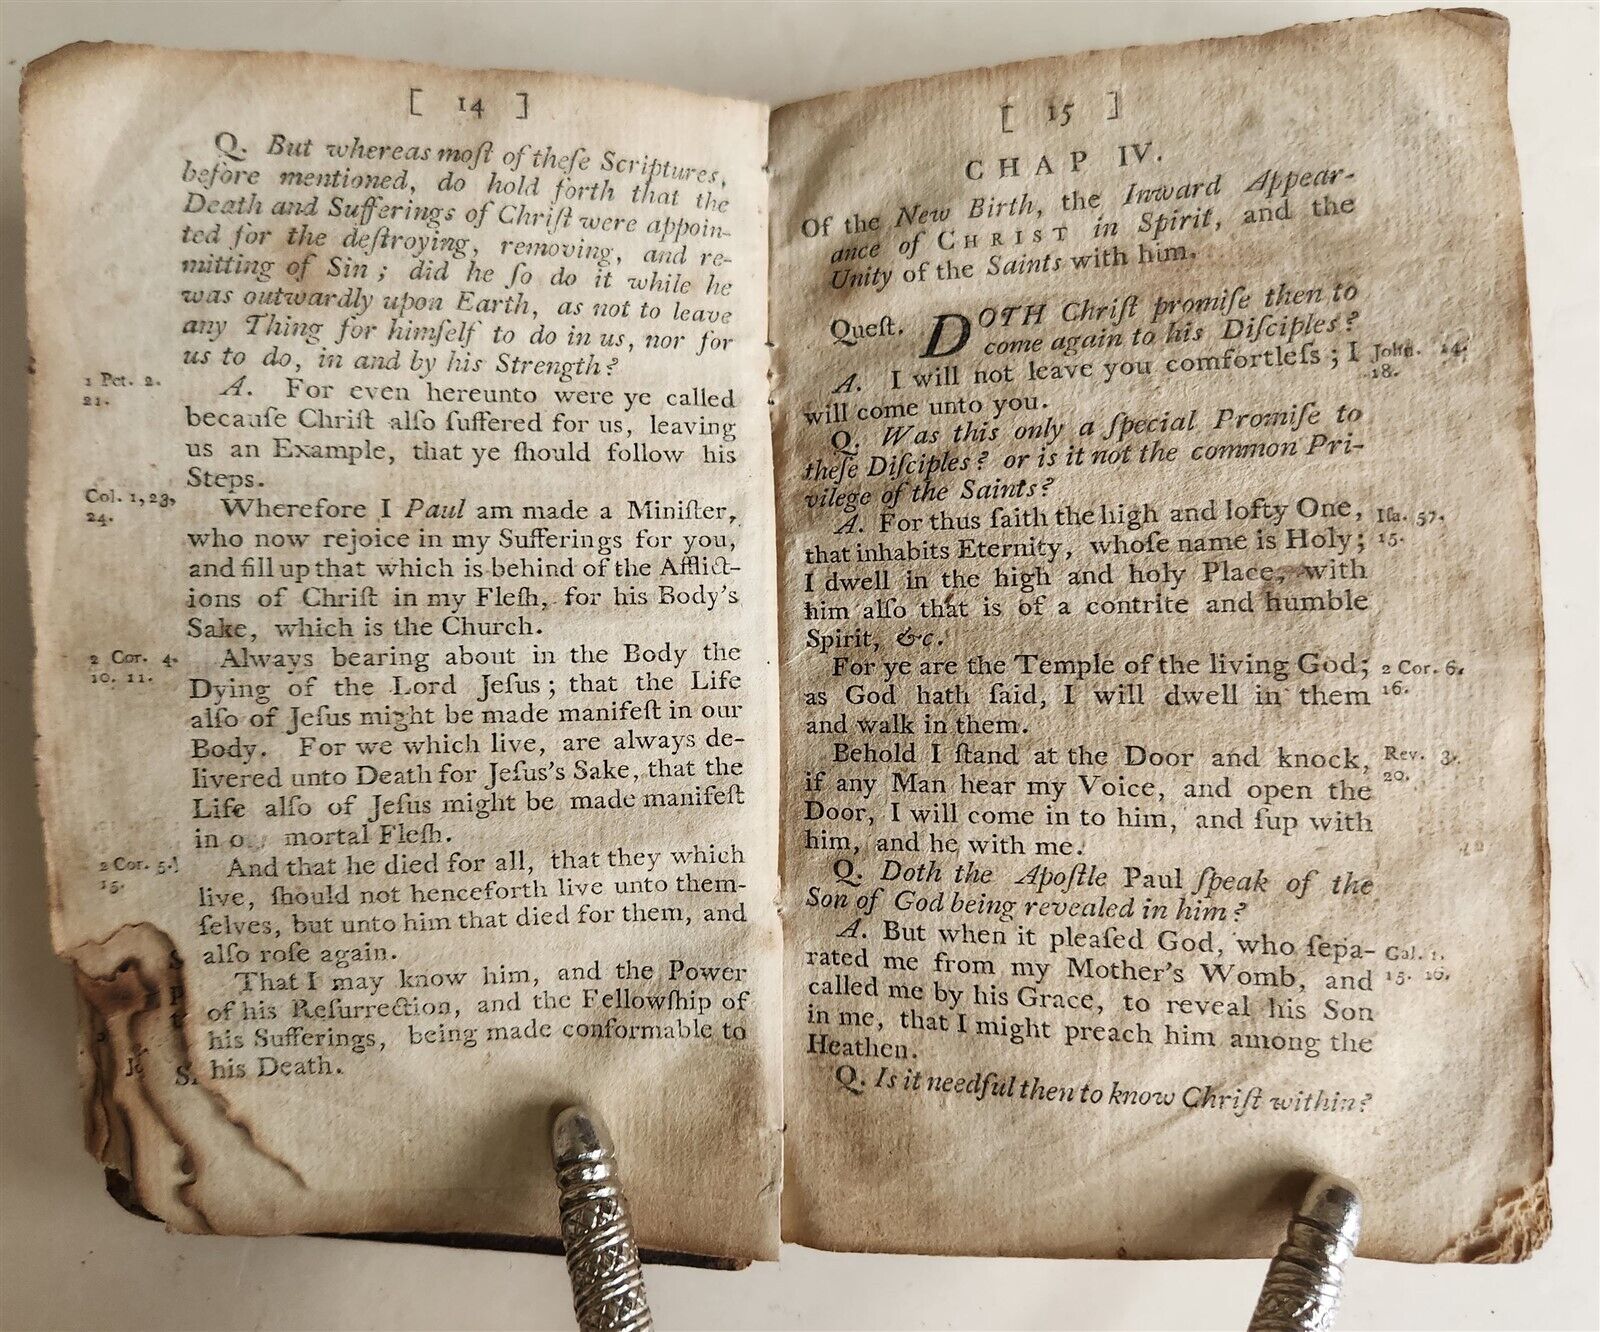 [ 14 ]
Q. But whereas moſt of theſe Scriptures,
before mentioned, do hold forth that the
Death and Sufferings of Chriſt were appoin-
ted for the deſtroying, removing, and re-
mitting of Sin; did he ſo do it while he
was outwardly upon Earth, as not to leave
any Thing for himſelf to do in us, nor for
us to do, in and by his Strength?
1 Pet. 2. A. For even hereunto were ye called
21. becauſe Chriſt alſo ſuffered for us, leaving
us an Example, that ye ſhould follow his
Steps.
Col. 1, 23, Wherefore I Paul am made a Miniſter,
24. who now rejoice in my Sufferings for you,
and fill up that which is behind of the Afflict-
ions of Chriſt in my Fleſh, for his Body's
Sake, which is the Church.
2 Cor. 4. Always bearing about in the Body the
10. 11. Dying of the Lord Jeſus; that the Life
alſo of Jeſus might be made manifeſt in our
Body. For we which live, are always de-
livered unto Death for Jeſus's Sake, that the
Life alſo of Jeſus might be made manifeſt
in o mortal Fleſh.
2 Cor. 5. And that he died for all, that they which
15. live, ſhould not henceforth live unto them-
ſelves, but unto him that died for them, and
alſo roſe again.
That I may know him, and the Power
of his Reſurrection, and the Fellowſhip of
his Sufferings, being made conformable to
his Death.
[ 15 ]
CHAP IV.
Of the New Birth, the Inward Appear-
ance of CHRIST in Spirit, and the
Unity of the Saints with him.
Queſt. DOTH Chriſt promiſe then to
come again to his Diſciples?
A. I will not leave you comfortleſs; I John. 14.
will come unto you. 18.
Q. Was this only a ſpecial Promiſe to
theſe Diſciples? or is it not the common Pri-
vilege of the Saints?
A. For thus ſaith the high and lofty One, Iſa. 57.
that inhabits Eternity, whoſe name is Holy; 15.
I dwell in the high and holy Place, with
him alſo that is of a contrite and humble
Spirit, &c.
For ye are the Temple of the living God; 2 Cor. 6.
as God hath ſaid, I will dwell in them 16.
and walk in them.
Behold I ſtand at the Door and knock, Rev. 3.
if any Man hear my Voice, and open the 20.
Door, I will come in to him, and ſup with
him, and he with me.
Q. Doth the Apoſtle Paul ſpeak of the
Son of God being revealed in him?
A. But when it pleaſed God, who ſepa- Gal. 1.
rated me from my Mother's Womb, and 15. 16.
called me by his Grace, to reveal his Son
in me, that I might preach him among the
Heathen.
Q. Is it needful then to know Chriſt within?